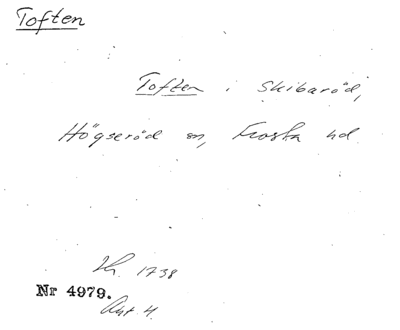 Toften
Toften i Skibaröd,
Högseröd sn, Frosta hd
Lh. 1738
Nr 4979.
Akt 4.